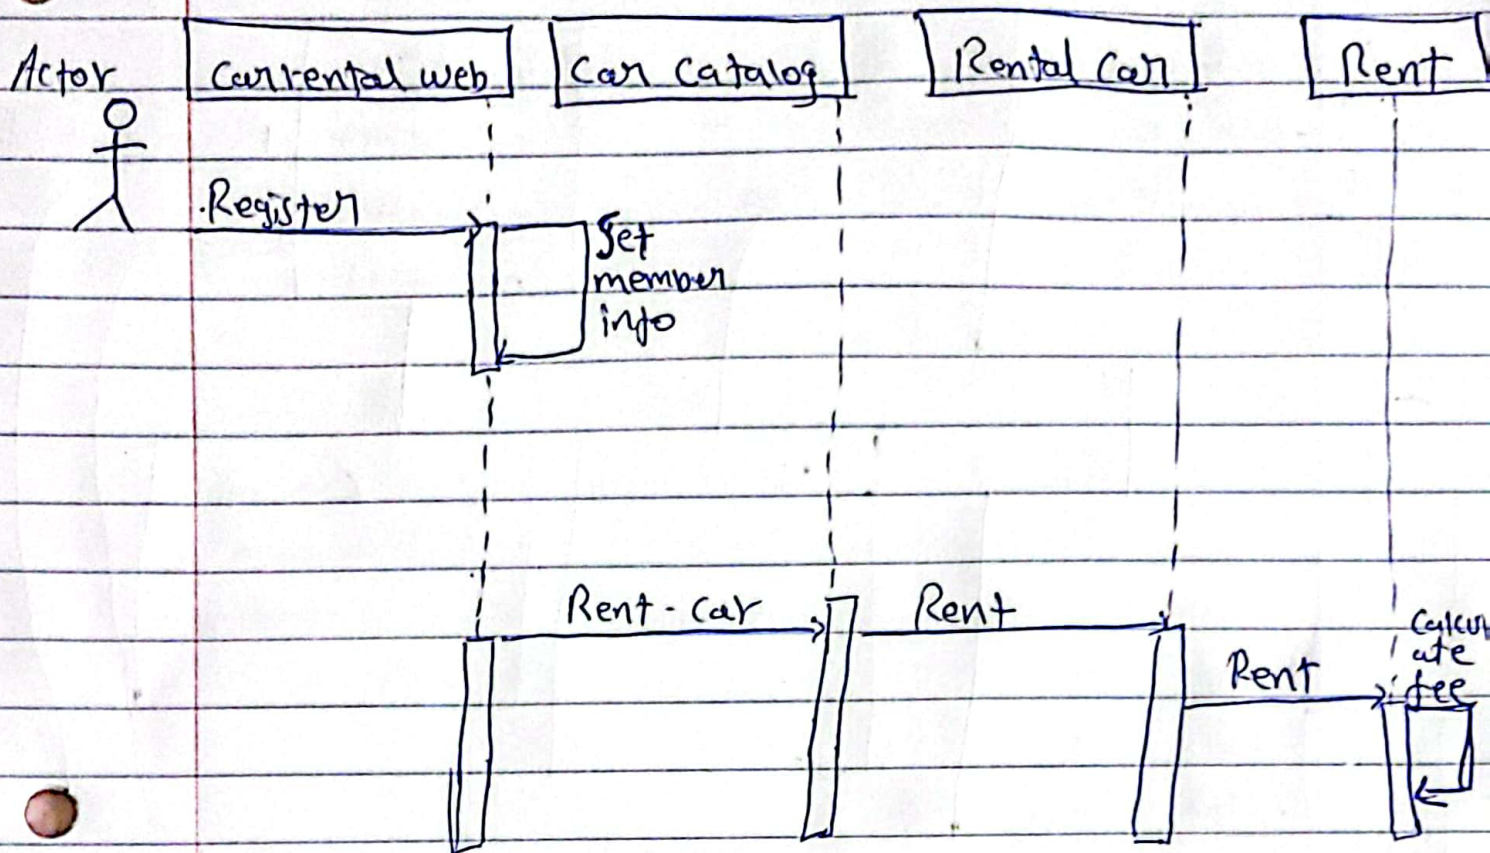 Actor
Car rental web
Car Catalog
Rental Car
Rent
Register
Set
member
info
Rent-car
Rent
Rent
Calcul
ate
fee